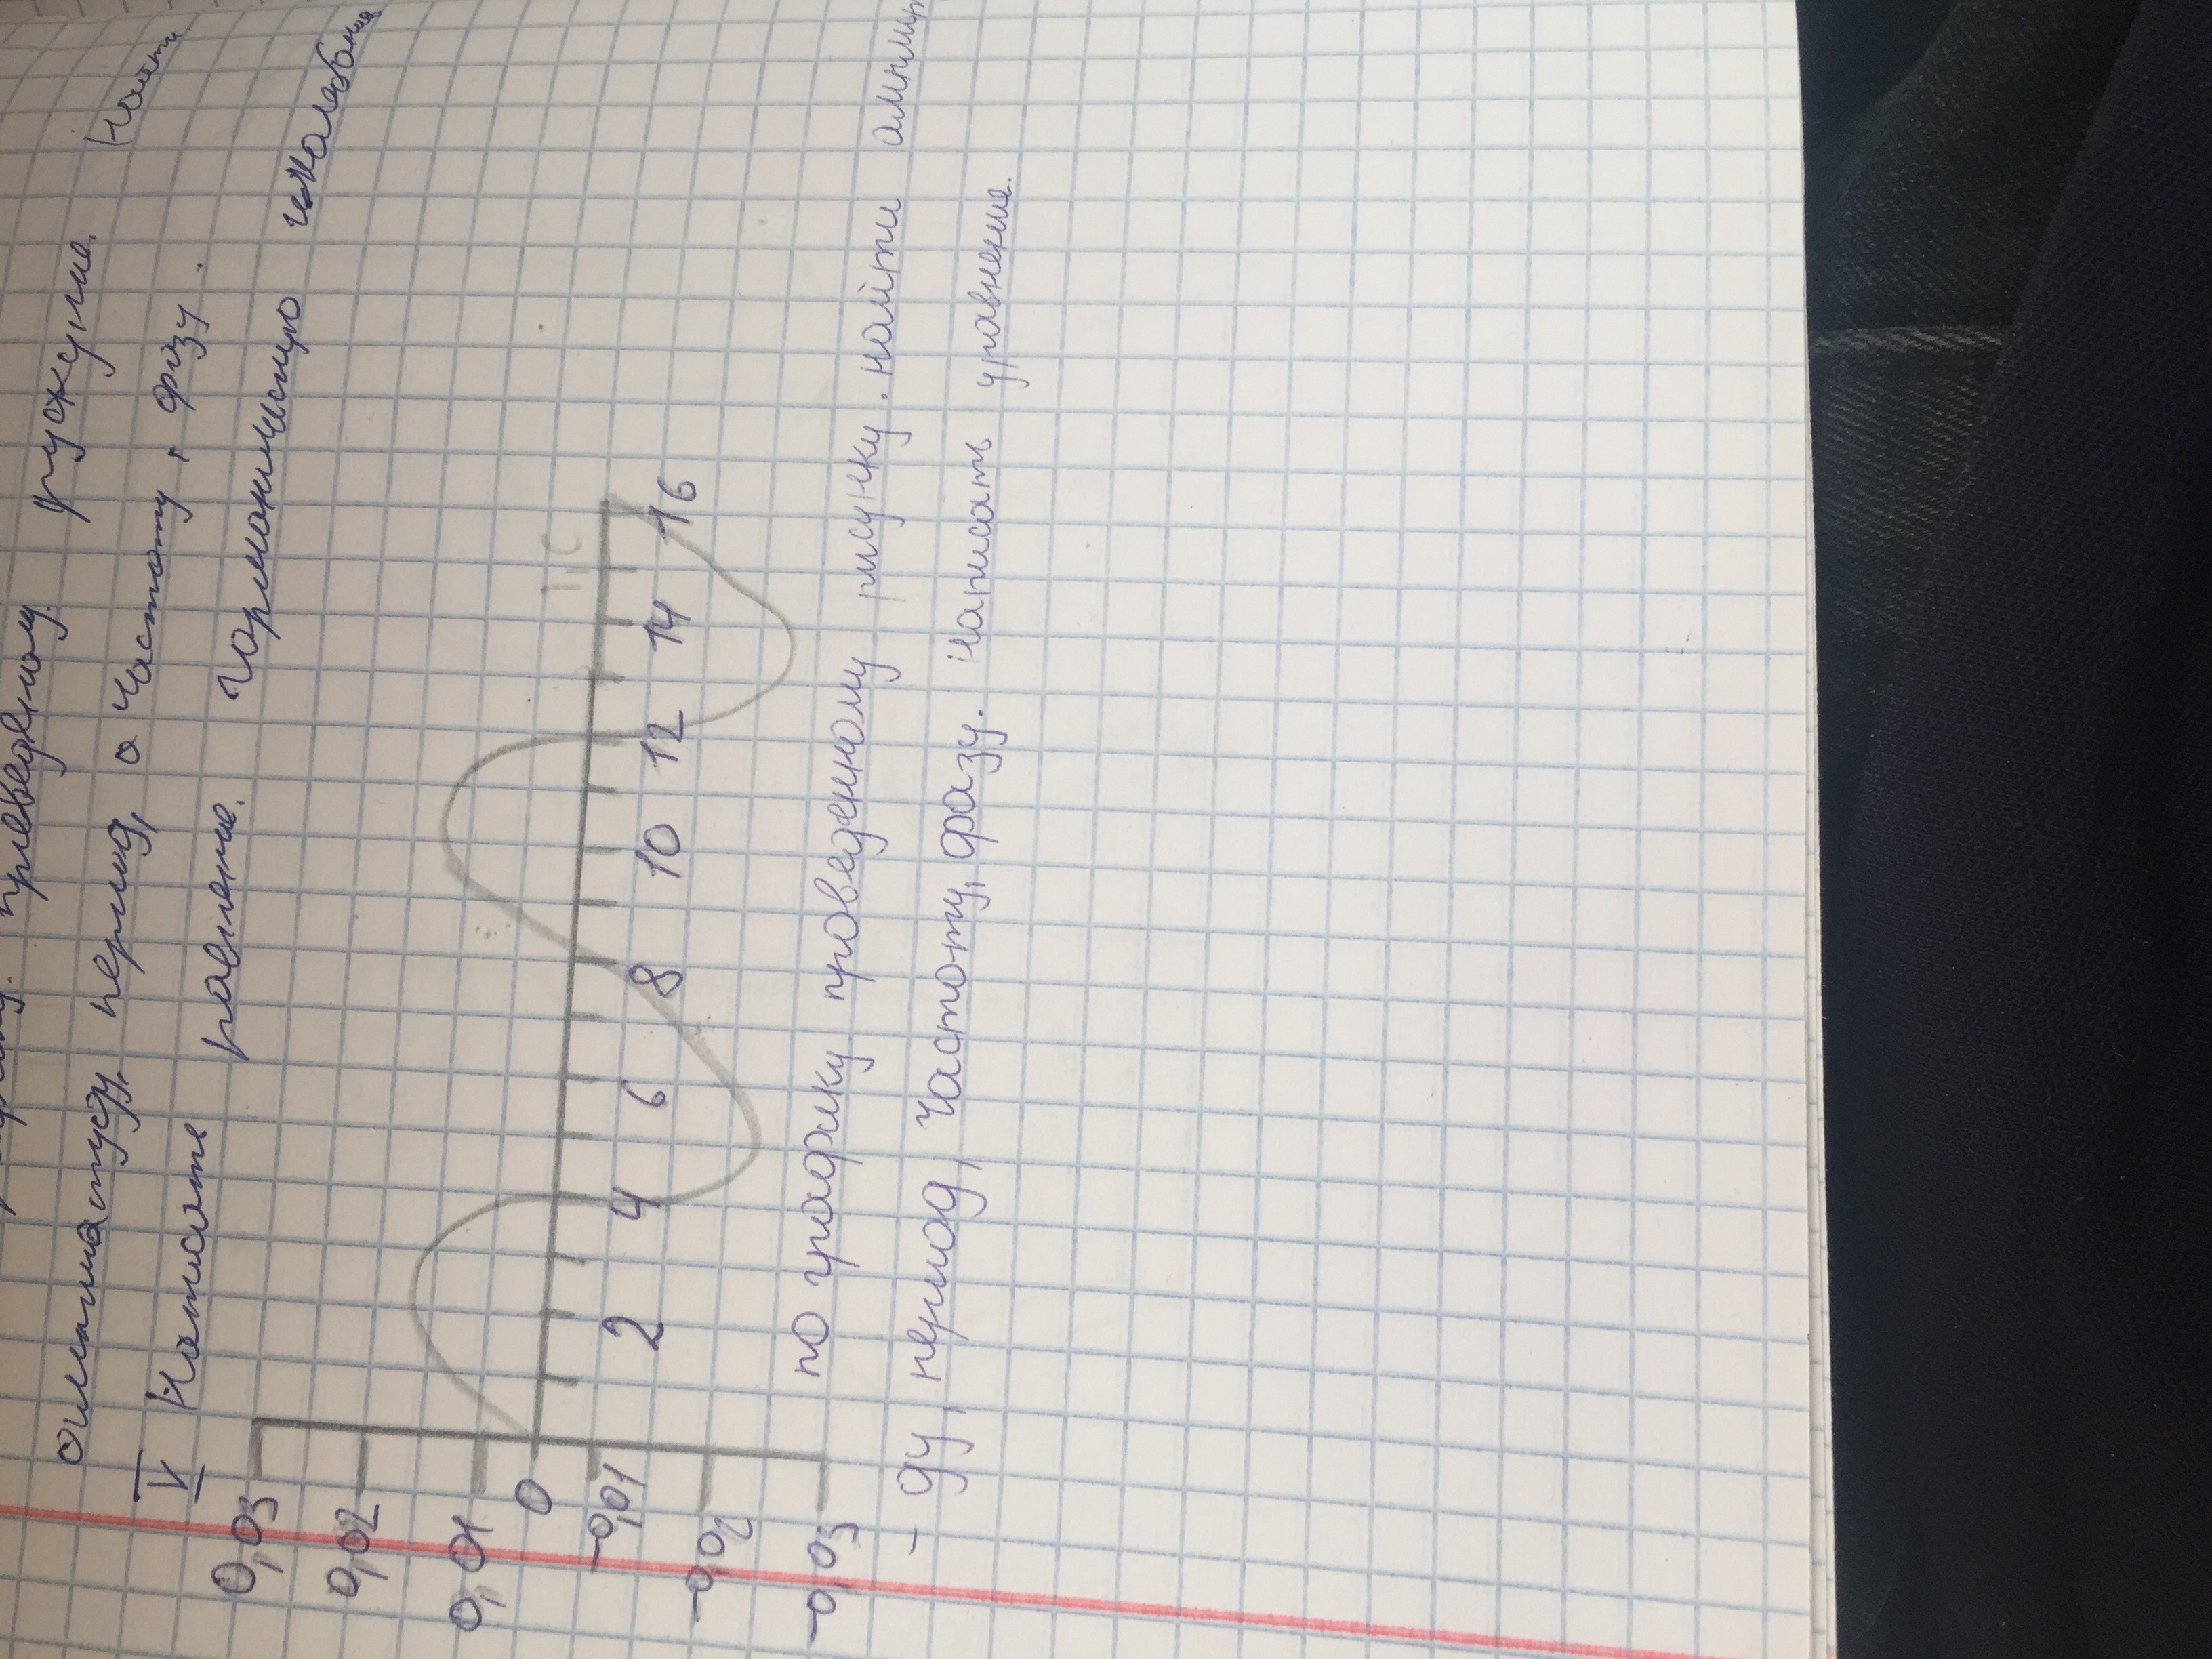 приведенному рисунке.
амплитуду, период, частоту, фазу. Найти
V Написать равнение. гармонических колебаний
0,03
0,02
0,01
0
-0,01
-0,02
-0,03
2 4 6 8 10 12 14 16
t, с
по графику проведенному рисунку. найти амплиту
- ду, период, частоту, фазу. Написать уравнение.